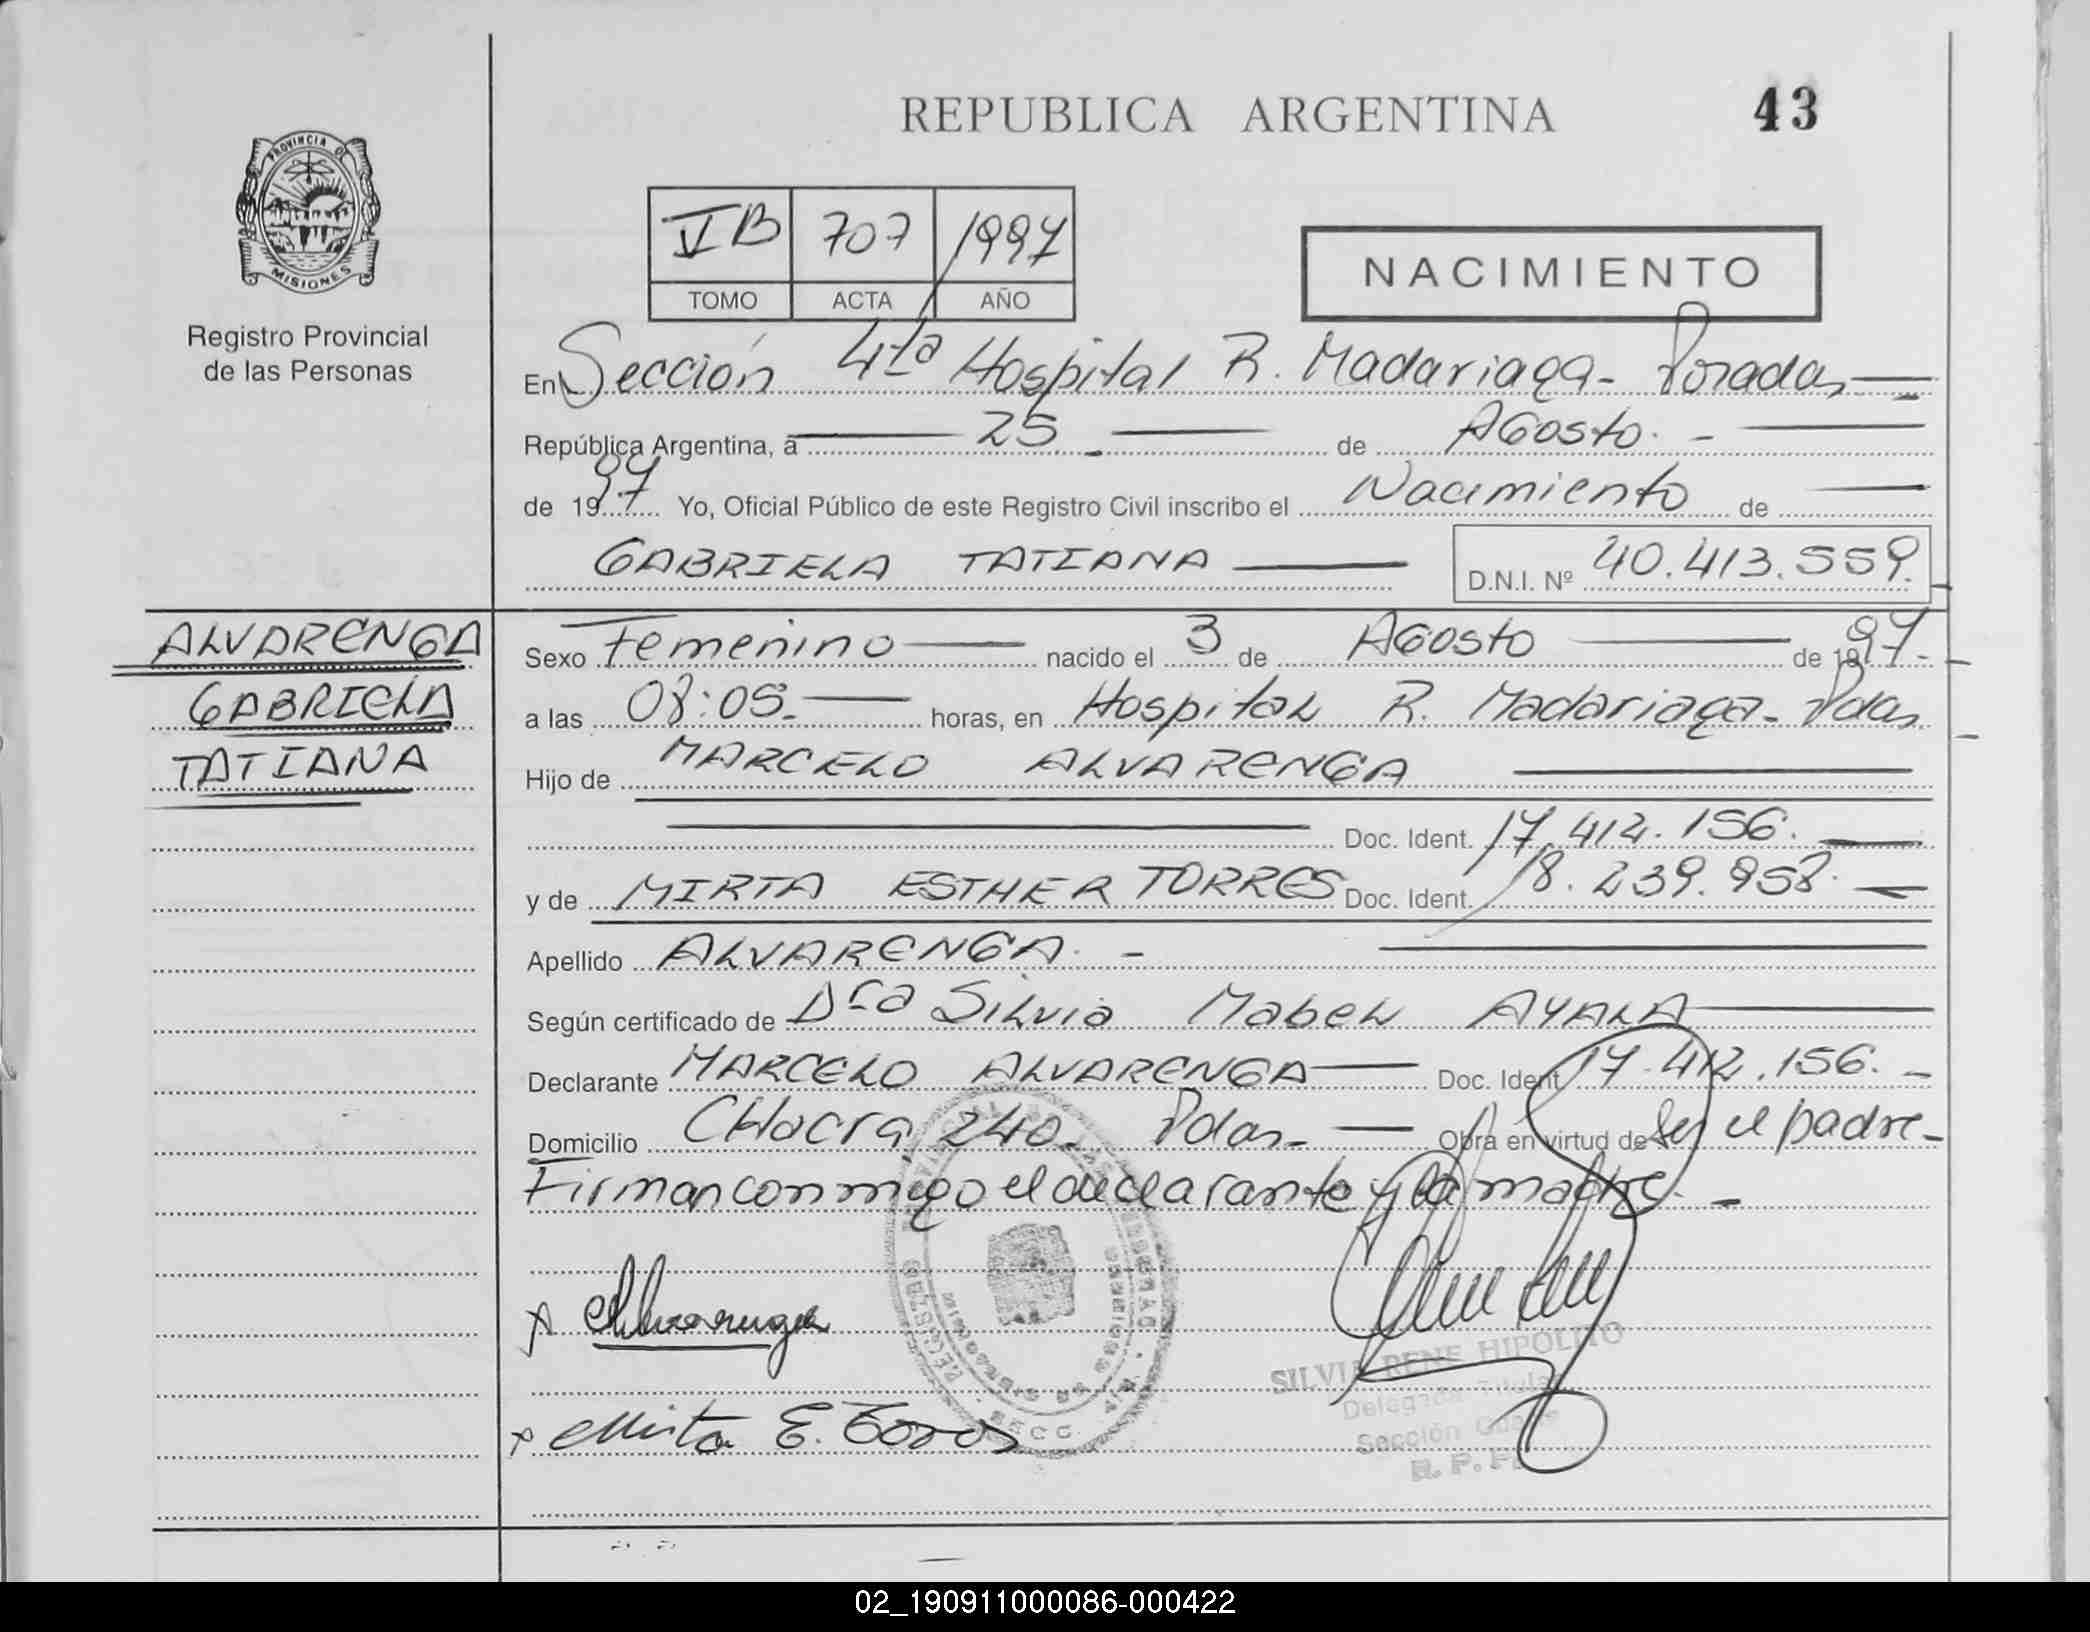 REPUBLICA ARGENTINA
43
PROVINCIA DE
MISIONES
Registro Provincial
de las Personas
VB 707 1997
TOMO ACTA AÑO
NACIMIENTO
En Sección 4ta Hospital R. Madariaga - Posadas
República Argentina, a 25 de Agosto.-
de 1997 Yo, Oficial Público de este Registro Civil inscribo el Nacimiento de
GABRIELA TATIANA D.N.I. Nº 40.413.559.
ALVARENGA
GABRIELA
TATIANA
Sexo Femenino nacido el 3 de Agosto de 1997.-
a las 08:05.- horas, en Hospital R. Madariaga - Pdas
Hijo de MARCELO ALVARENGA
Doc. Ident. 17.412.156.
y de MIRTA ESTHER TORRES Doc. Ident. 18.239.958.
Apellido ALVARENGA.-
Según certificado de Dra Silvia Mabel AYALA
Declarante MARCELO ALVARENGA Doc. Ident. 17.412.156.-
Domicilio CHacra 240. Pdas.- Obra en virtud de Ser el padre-
Firman conmigo el declarante y la madre.-
x Alvarenga
x Mirta E. Torres
SILVIA RENE HIPOLITO
Delegada Titular
Sección
R. P. P.
02_190911000086-000422